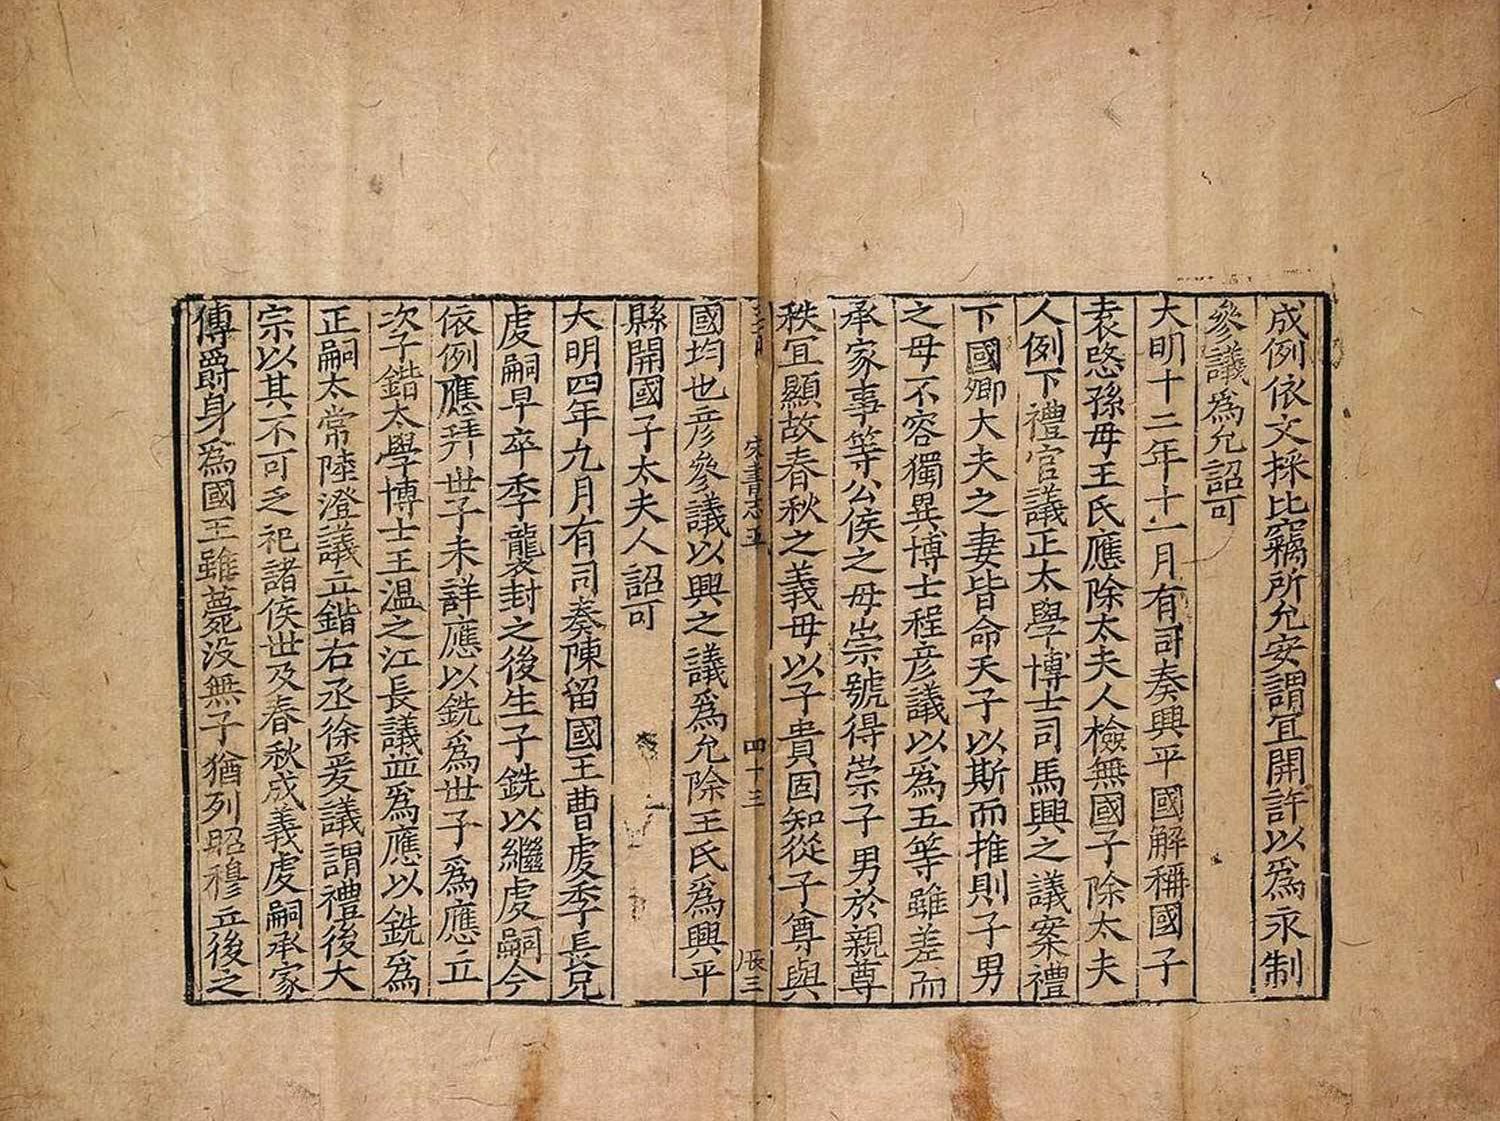 成例依文採比竊所允安謂宜開許以爲永制
參議爲允詔可
大明十二年十一月有司奏興平國解稱國子
袁愍孫母王氏應除太夫人檢無國子除太夫
人例下禮官議正太學博士司馬興之議案禮
下國卿大夫之妻皆命天子以斯而推則子男
之母不容獨異博士程彦議以爲五等雖差而
承家事等公侯之母崇號得崇子男於親尊
秩冝顯故春秋之義母以子貴固知從子尊與
宋書志五
四十三
國均也彦參議以興之議爲允除王氏爲興平
縣開國子太夫人詔可
大明四年九月有司奏陳留國王曹虔季長兄
虔嗣早卒季襲封之後生子銑以繼虔嗣今
依例應拜世子未詳應以銑爲世子爲應立
次子鍇太學博士王温之江長議並爲應以銑爲
正嗣太常陸澄議立鍇右丞徐爰議謂禮後大
宗以其不可乏祀諸侯世及春秋成義虔嗣承家
傳爵身爲國王雖薨没無子猶列昭穆立後之